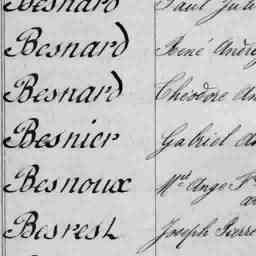 Besnard Paul Jule
Besnard René André
Besnard Théodore An
Besnier Gabriel A
Besnoux Ange F
Besrest Joseph Pierre